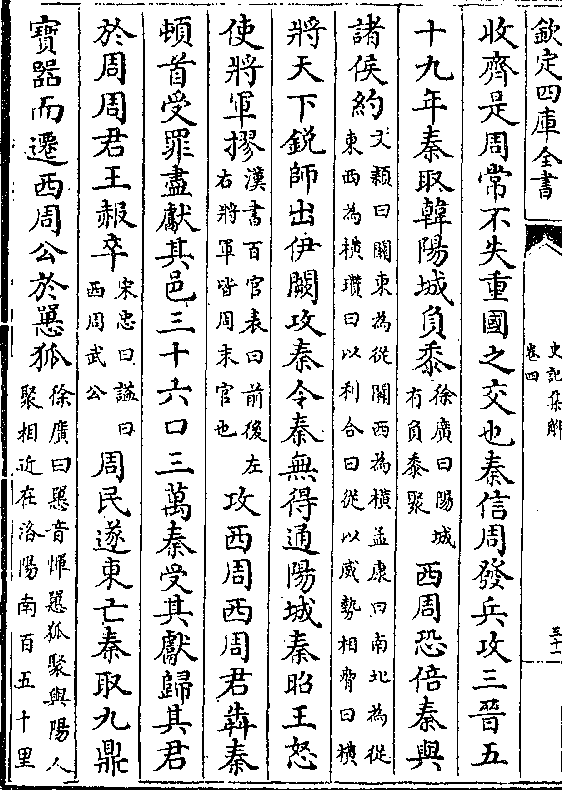 欽定四庫全書
史記集解
卷四
三十一
收齊是周常不失重國之交也秦信周發兵攻三晉五
十九年秦取韓陽城負黍徐廣曰陽城有負黍聚西周恐倍秦與
諸侯約文穎曰關東為從關西為橫孟康曰南北為從東西為橫瓚曰以利合曰從以威勢相脅曰橫
將天下鋭師出伊闕攻秦令秦無得通陽城秦昭王怒
使將軍摎漢書百官表曰前後左右將軍皆周末官也攻西周西周君犇秦
頓首受罪盡獻其邑三十六口三萬秦受其獻歸其君
於周周君王赧卒宋忠曰諡曰西周武公周民遂東亡秦取九鼎
寶器而遷西周公於㦠狐徐廣曰㦠音憚㦠狐聚與陽人聚相近在洛陽南百五十里